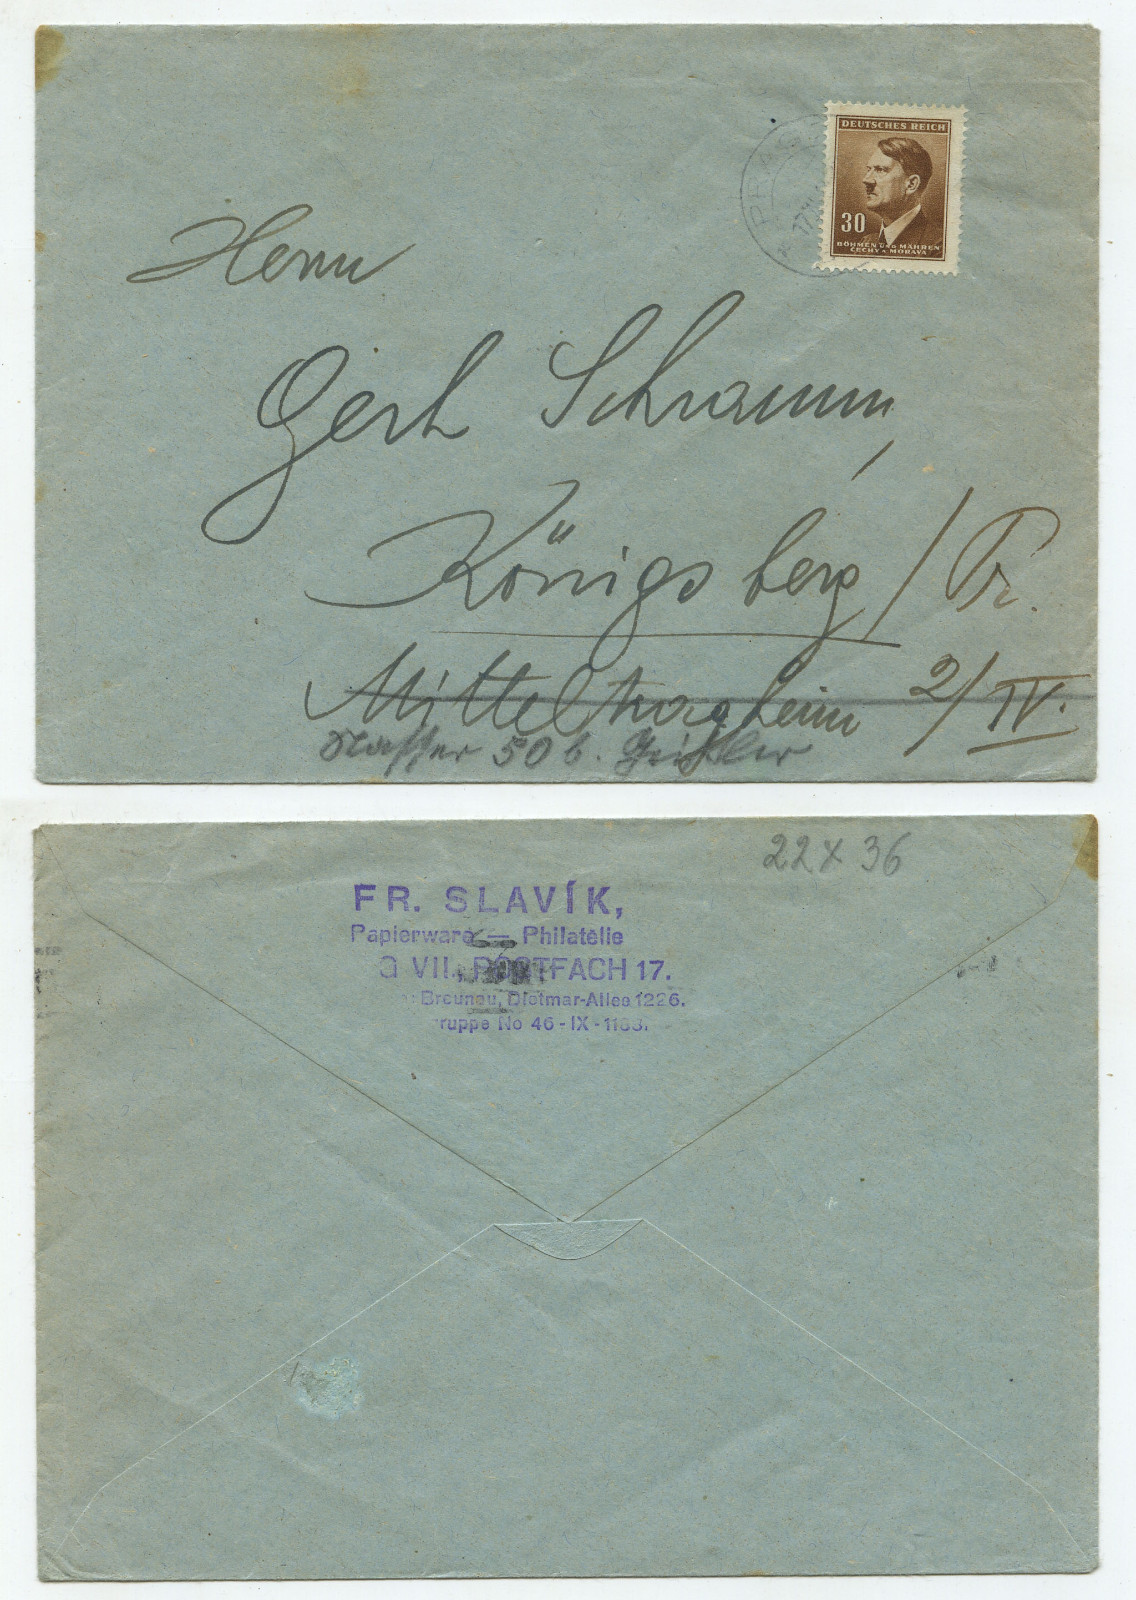 DEUTSCHES REICH
30
BÖHMEN UND MÄHREN
ČECHY A MORAVA
PRAG
Herrn
Gerh Schramm,
Königsberg / Pr.
Mitteltragheim 2/IV.
50 b. Geissler
22 X 36
FR. SLAVÍK,
Papierware — Philatelie
G VII., POSTFACH 17.
Breunau, Dietmar-Allee 1226.
ruppe No 46 - IX - 1183.